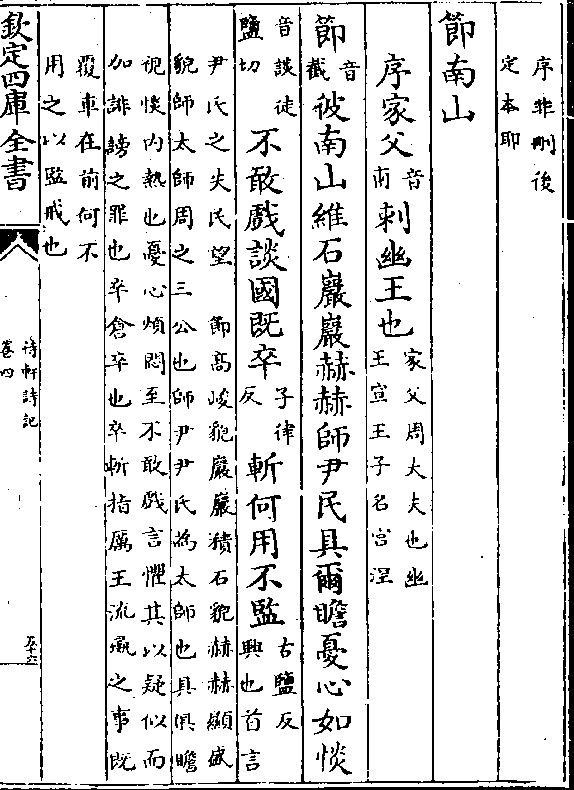 序非刪後
定本耶
節南山
序家父音甫刺幽王也家父周大夫也幽
王宣王子名宫湼
節音截彼南山維石巖巖赫赫師尹民具爾瞻憂心如惔
音談徒
鹽切不敢戲談國既卒子律
反斬何用不監古鹽反
興也首言
尹氏之失民望　節高峻貌巖巖積石貌赫赫顯盛
貌師太師周之三公也師尹尹氏為太師也具俱瞻
視惔内熱也憂心煩悶至不敢戲言懼其以疑似而
加誹謗之罪也卒倉卒也卒斬指厲王流彘之事既
覆車在前何不
用之以監戒也
欽定四庫全書
待軒詩記
卷四
五十六